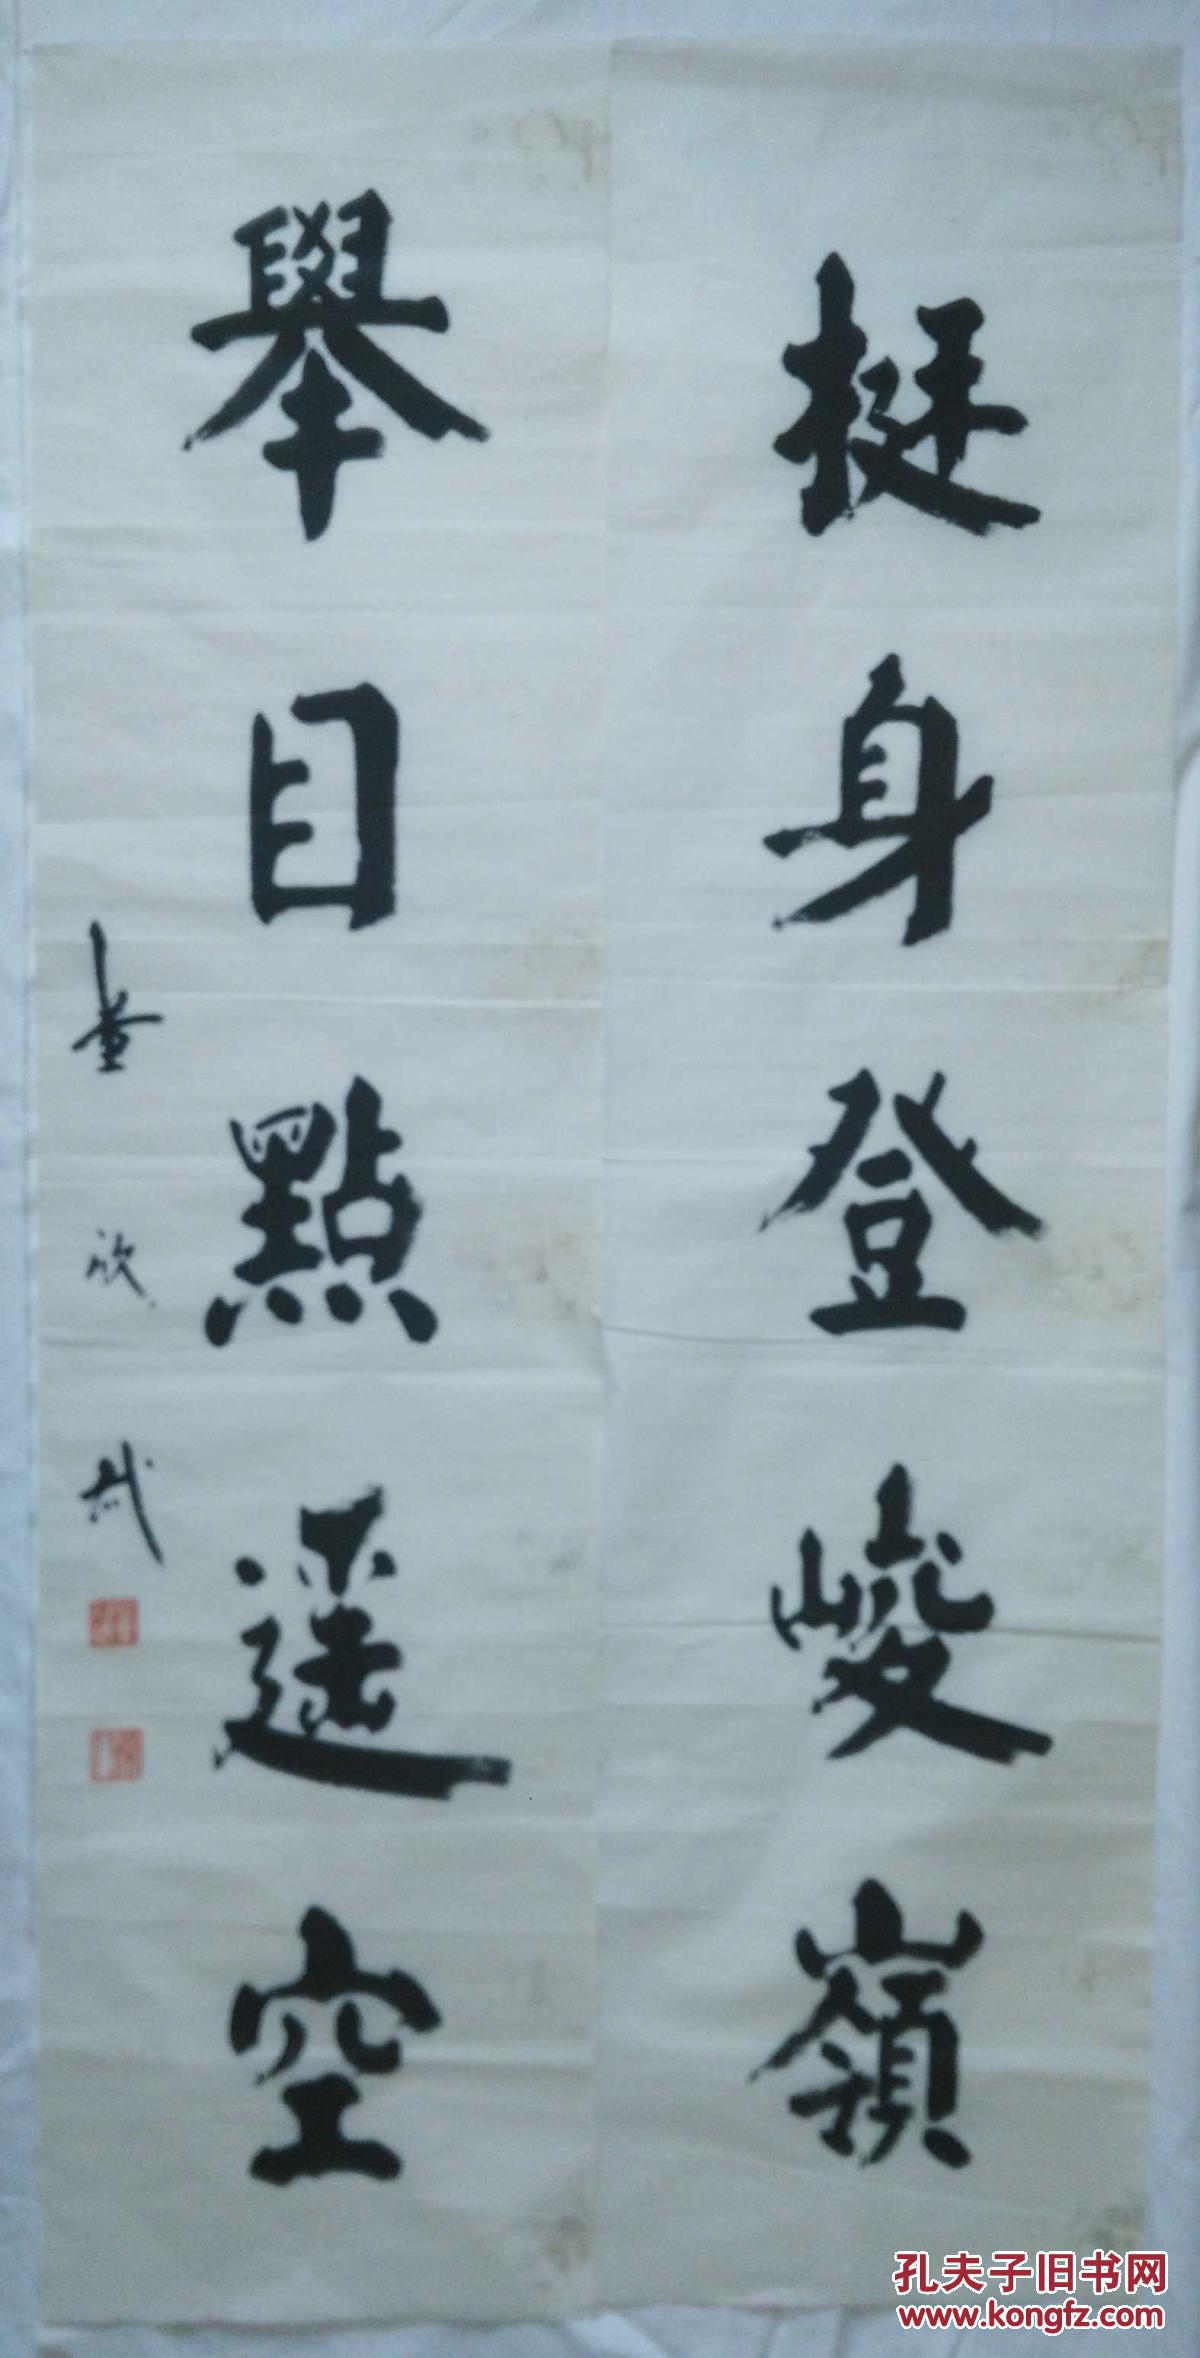 挺身登峻嶺
舉目點遥空
董欣武
孔夫子旧书网
www.kongfz.com